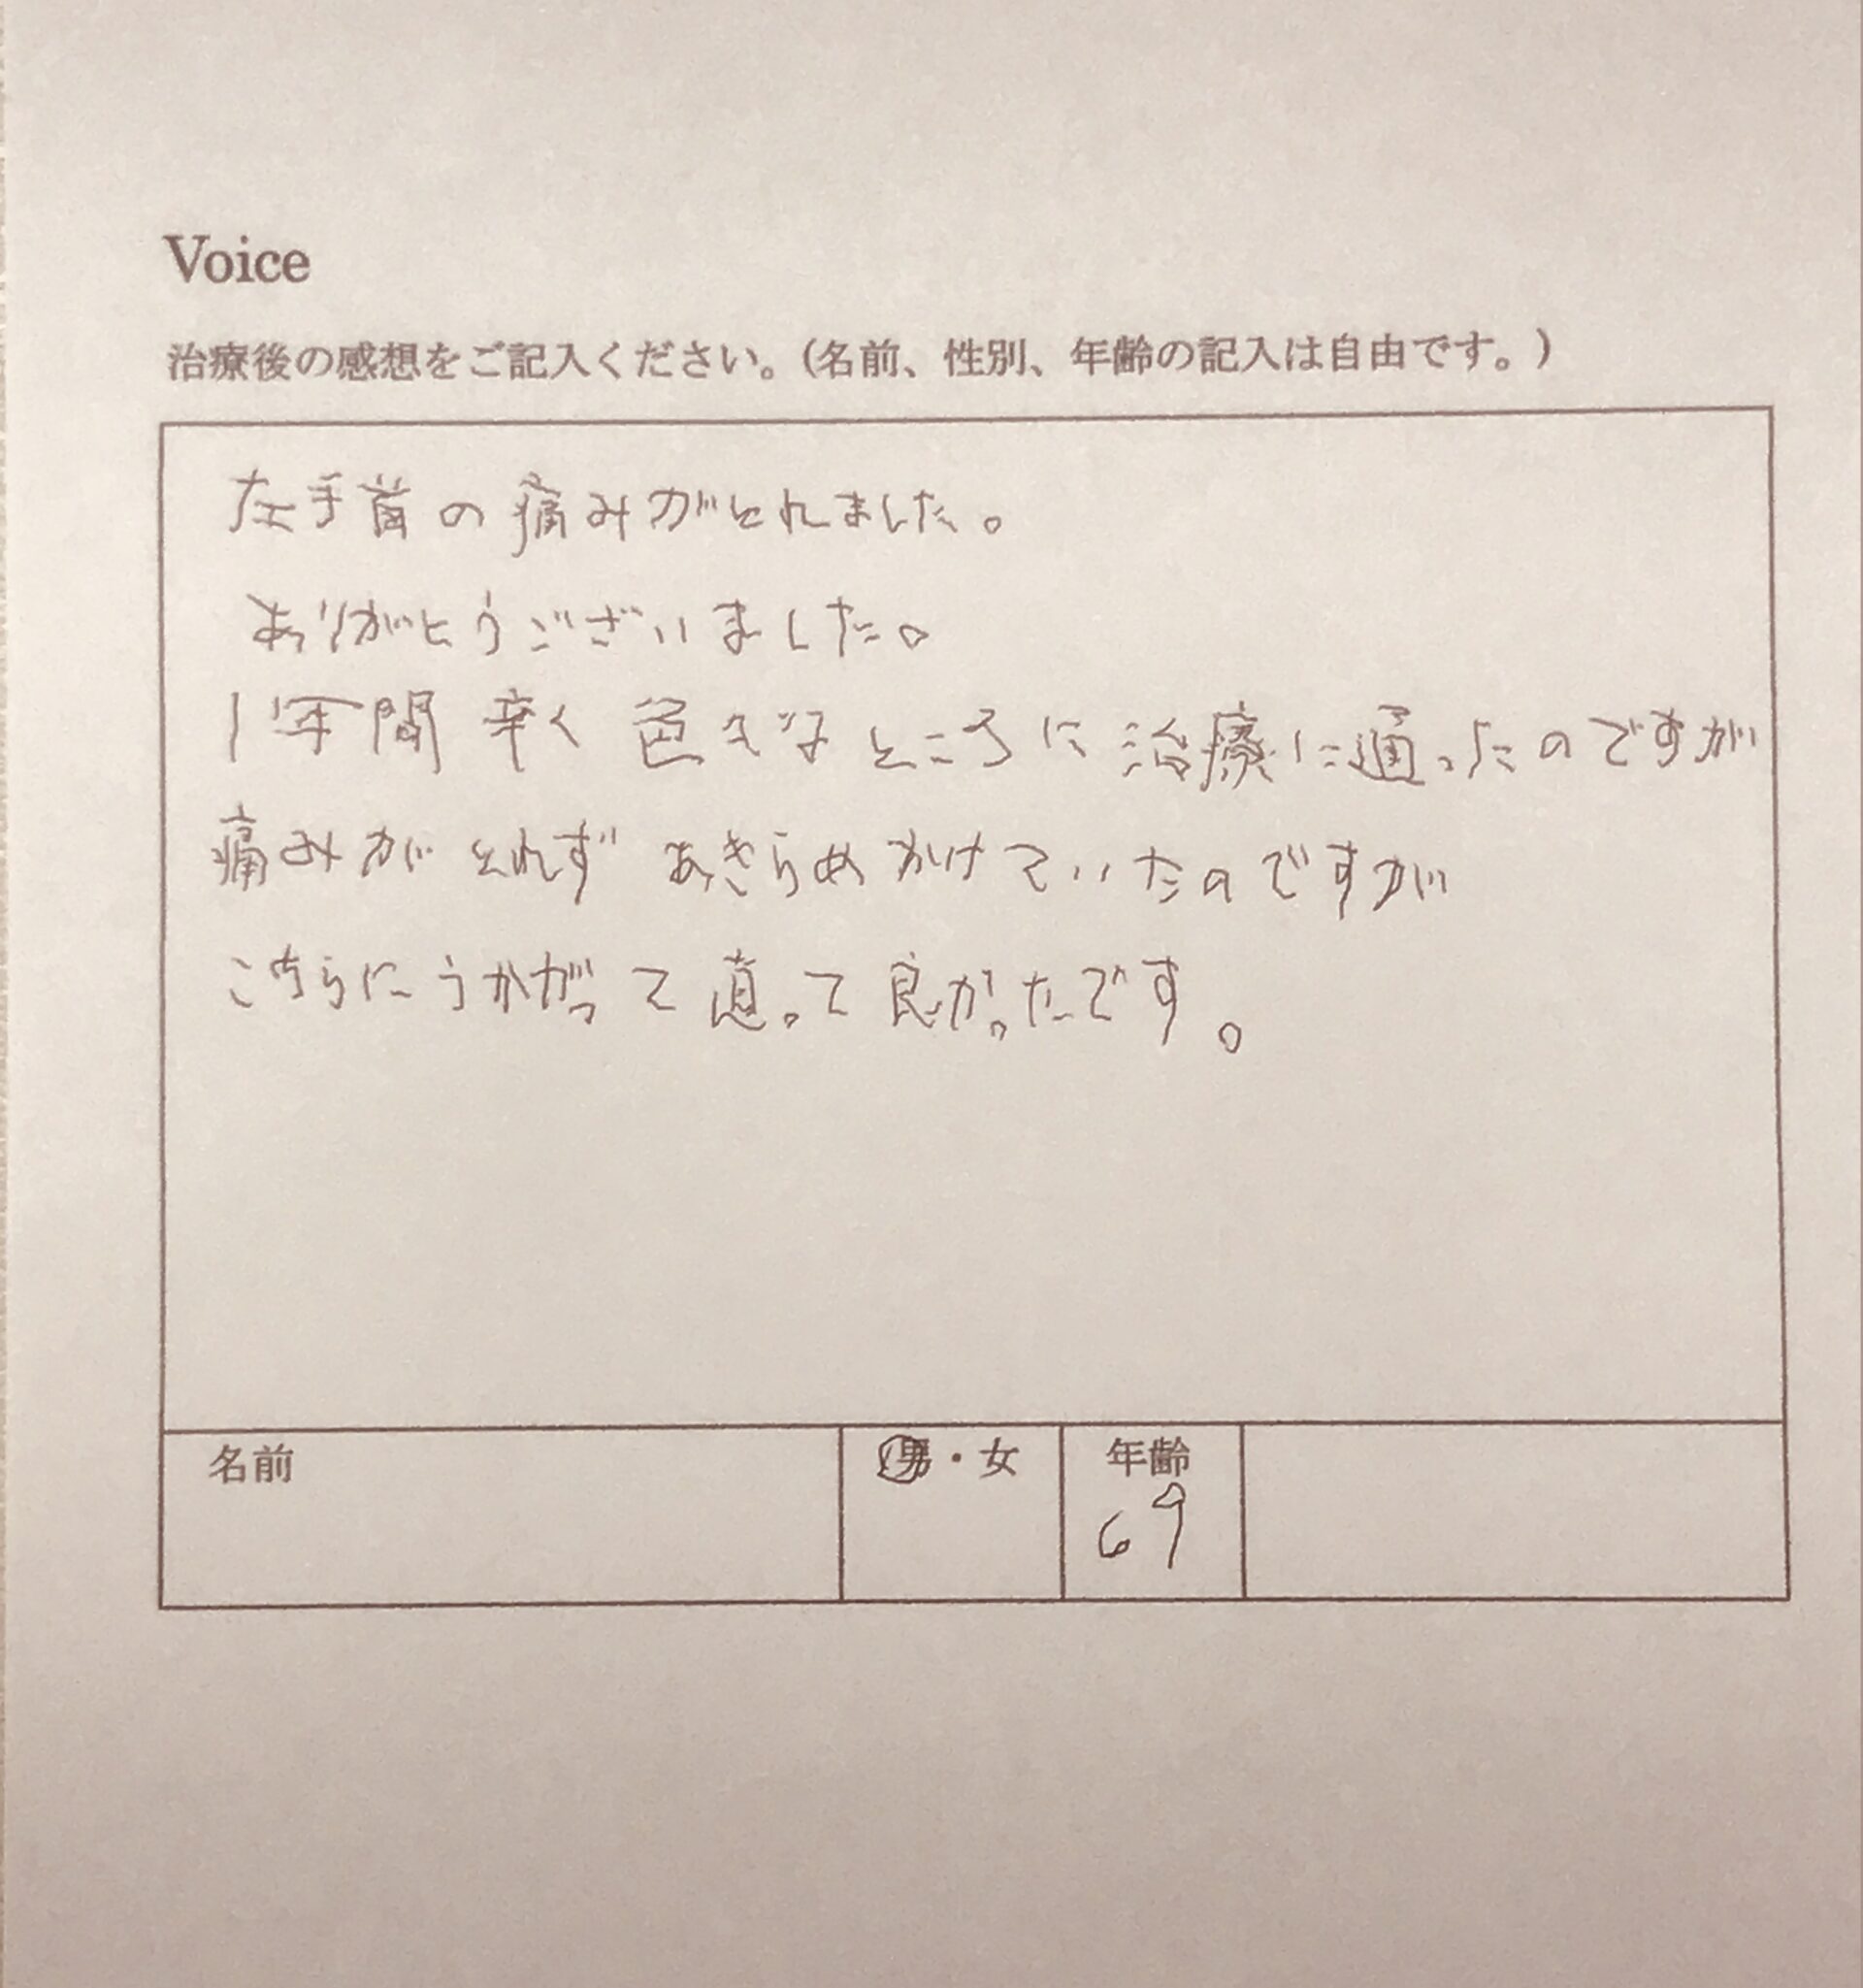 Voice
治療後の感想をご記入ください。(名前、性別、年齢の記入は自由です。)
左手首の痛みがとれました。
ありがとうございました。
1年間 辛く 色々なところに治療に通ったのですが
痛みがとれず あきらめかけていたのですが
こちらにうかがって直って良かったです。
名前 男・女 年齢
69